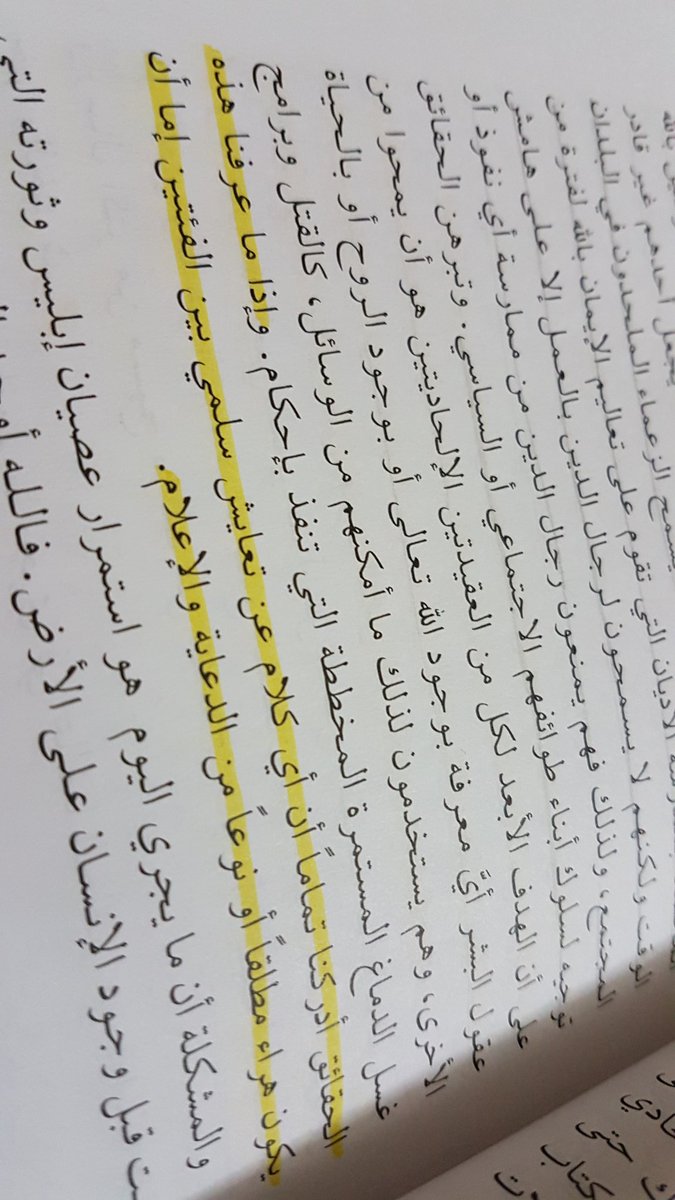 يجعل أحدهم غير قادر
يسمح الزعماء الملحدون في البلدان
الأديان التي تقوم على تعاليم الإيمان بالله لفترة من
الوقت ولكنهم لا يسمحون لرجال الدين بالعمل إلا على هامش
المجتمع، ولذلك فهم يمنعون رجال الدين من ممارسة أي نفوذ أو
توجيه لسلوك أبناء طوائفهم الاجتماعي أو السياسي. وتبرهن الحقائق
على أن الهدف الأبعد لكل من العقيدتين الإلحاديتين هو أن يمحوا من
عقول البشر أيّ معرفة بوجود الله تعالى أو بوجود الروح أو بالحياة
الأخرى، وهم يستخدمون لذلك ما أمكنهم من الوسائل، كالقتل وبرامج
غسل الدماغ المستمرة المخططة التي تنفذ بإحكام. وإذا ما عرفنا هذه
الحقائق أدركنا تماماً أن أي كلام عن تعايش سلمي بين الفئتين إما أن
يكون هراء مطلقاً أو نوعاً من الدعاية والإعلام.
والمشكلة أن ما يجري اليوم هو استمرار عصيان إبليس وثورته التي
قبل وجود الإنسان على الأرض. فالله
حتى
كتاب